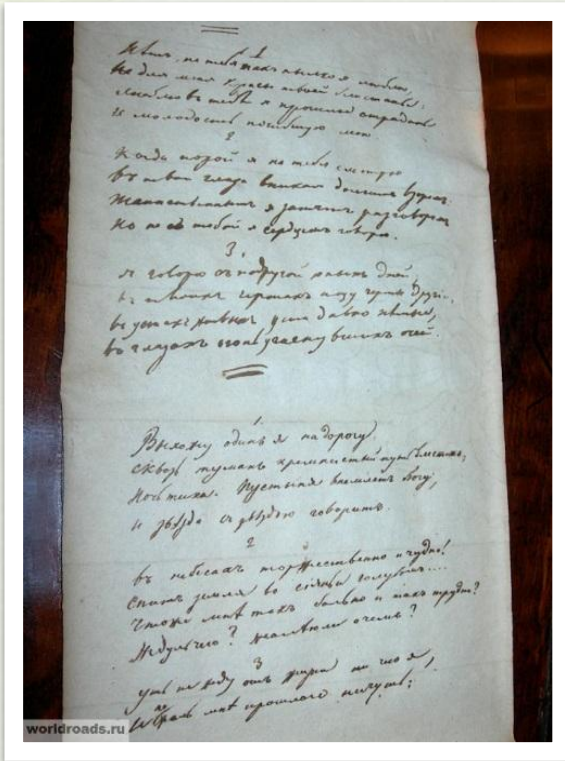 1
Нѣтъ, не тебя такъ пылко я люблю,
Не для меня красы твоей блистанье:
Люблю въ тебѣ я прошлое страданье
И молодость погибшую мою.
2
Когда порой я на тебя смотрю
Въ твои глаза вникая долгимъ взоромъ
Таинственнымъ я занятъ разговоромъ
Но не съ тобой я сердцемъ говорю.
3.
Я говорю съ подругой юныхъ дней,
въ твоихъ чертахъ ищу черты другія,
въ устахъ живыхъ уста давно нѣмыя,
въ глазахъ огонь угаснувшихъ очей.
1.
Выхожу одинъ я на дорогу
Сквозь туманъ кремнистый путь блеститъ;
Ночь тиха. Пустыня внемлетъ Богу,
И звѣзда съ звѣздою говоритъ.
2
Въ небесахъ торжественно и чудно!
Спитъ земля въ сіяньи голубомъ....
Чтоже мнѣ такъ больно и такъ трудно?
Жду ль чего? жалѣю ли о чемъ?
3
Ужъ не жду отъ жизни ничего я,
И не жаль мнѣ прошлаго ничуть;
worldroads.ru